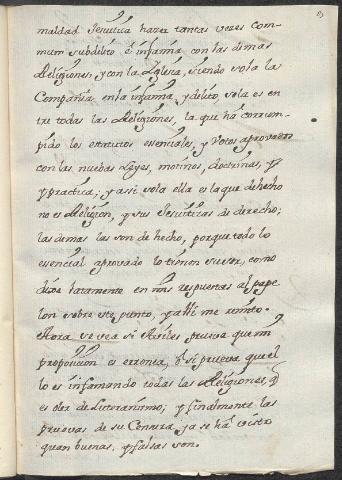 maldad Jesuitica haver tantas vezes com-
mum su delito è infamia con las demas
Religiones, y con la Iglesia, siendo sola la
Compañia en la infamia, y delito, sola es en
tre todas las Religiones, la que ha corrom-
pido los estatutos essenciales, y Votos aprovados
con las nuebas Leyes, motinos, doctrinas, y
y practica; y assi sola ella es la que de hecho
no es Religion, y sus Jesuiticas de derecho;
las demas las son de hecho, porque todo lo
essencial aprovado lo tienen en uso, como
dixe latamente en mis respuestas al pape
lon sobre este punto, y alli me remito.
Aora se vea si Aviles prueva que mi
proposicion es erronea, ò si prueva que el
lo es infamando todas las Religiones, q
es obr de Luteranismo; y finalmente las
pruevas de su Censura ya se ha visto
quan buenas, y falsas son.